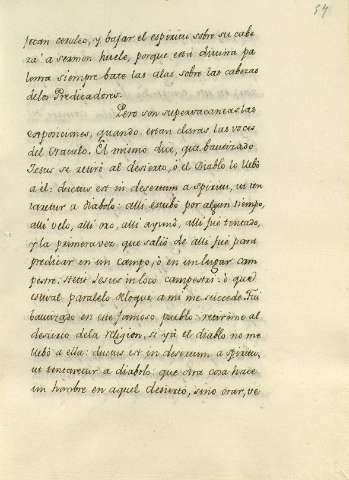 57
fecan ceruleo, y bajar el espiritu sobre su cabe
za: a sermon huele, porque esta divina pa
loma siempre bate las alas sobre las cabezas
delos Predicadores.
Pero son supervacaneas las
exposiciones, quando estan claras las voces
del Oraculo. El mismo dice, q̃ bautizado
Jesus se retiró al desierto, ò el Diablo lo llebò
a èl: ductus est in desertum a spiritu, ut ten
taretur a diabolo: alli estubo por algun tiempo,
alli velo, alli oro, alli ayunò, alli fuè tentado,
y la primera vez, que saliò de alli fuè para
predicar en un campo, ò en un lugar cam
pestre. Stetit Jesus in loco campestri: ò què
estival paralelo de lo que a mi me succede. Fui
bautizado en este famoso pueblo: retiréme al
desierto dela religion, si yà el diablo no me
llebò a ella: ductus est in desertum a spiritu,
ut tentaretur a diabolo: que otra cosa hace
un hombre en aquel desierto, sino orar, ve